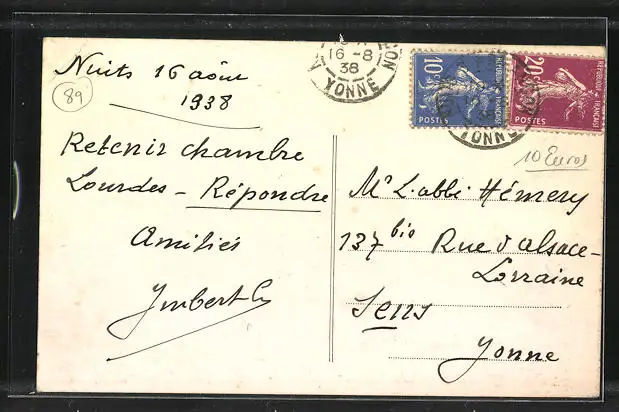 Nuits 16 août
1938
89
Retenir chambre
Lourdes - Répondre
Amitiés
Imbert
16-8
38
YONNE
10c
POSTES
REPUBLIQUE FRANÇAISE
20c
POSTES
REPUBLIQUE FRANÇAISE
YONNE
10 Euros
Mr L'abbé Hémery
137 bis Rue d'Alsace-
Lorraine
Sens
Yonne